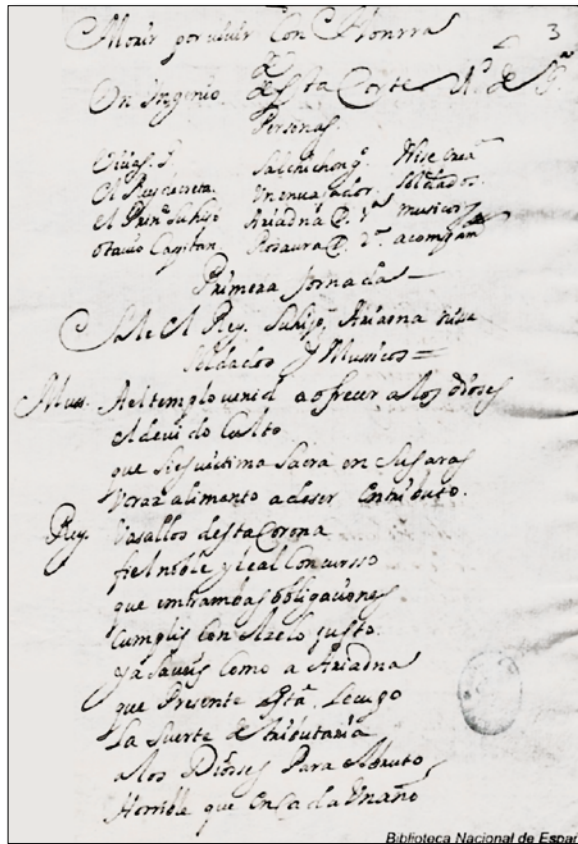 Morir por viuir Con Honrra
3
De
Vn Ingenio desta Corte
Personas.
Salchichon g.º
El Rey de creta. Vn envaxador. Soldados.
el Prin.e Su hijo Ariadna D. 1.ª musicos
otauio Capitan Rosaura D. 2.ª acompam
Primera Jornada
Sale el Rey, Su hijo, Ariadna
Soldados y Mussicos
Mus. Al templo venid a ofrecer a los dioses
el deuido Culto
que si es victima Sacra en Sus aras
voraz alimento a de ser En tributo.
Rey. Vasallos desta Corona
fiel noble y leal Concursso
que en trambas obligaciones
Cumplis Con zelo justo.
ya Saueis Como a Ariadna
que Presente está, Le cupo
La Suerte de tributaria
a los Diosses Para el bruto
Horrible que En Cada Vn año
Biblioteca Nacional de Españ